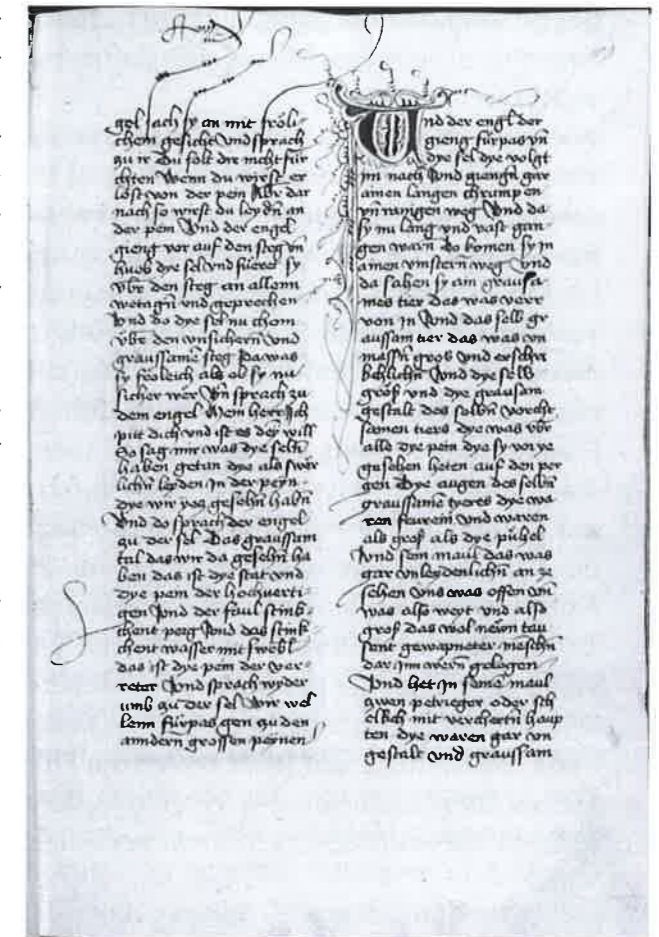 gel sach sy an mit fröli-
chem gesicht Vnd sprach
zu ir Du solt dir nicht für
chten Wenn du wirst er
löst von der pein Aber dar
nach so wirst du leydn̄ an
der pein Vnd der engel
gieng vor auf den steg vn̄
hueb dye sel vnd fueret sy
vbr den steg an allenn
wetagn̄ vnd geprechen
Vnd do dye sel nu chom
vbr den vnsichern̄ vnd
graussame steg Da was
sy frôleich als ob sy nu
sicher wêr Vn̄ sprach zu
dem engel Mein herr Ich
pitt dich vnd ist es dey will
So sag mir was dye seln̄
haben getan dye als swêr
lichn̄ leyden in der peyn
dye wir yecz gesehn̄ habn̄
Vnd do sprach der engel
zu der sel Das graussam
tal das wir da gesehn̄ ha
ben das ist dye stat vnd
dye pein der hochuerti-
gen Vnd der faul stink-
chent perg Vnd das stink
chent wasser mit swebl
das ist dye pein der ver-
reter Vnd sprach wyder
umb zu der sel Wir wel
lenn fürpas gen zu den
anndern̄ grossen peynen
Vnd der engl der
gieng fürpas vn̄
dye sel dye volgt
im nach Vnd giengn̄ gar
ainen langen chrumpen
vn̄ ranigen weg Vnd da
sy nu lang vnd vast gan-
gen warn̄ do komen sy in
ainen vinstern̄ weg Vnd
da sahen sy ain grausa
mes tier das was verr
von in Vnd das selb gr
aussam tier das was vn
massn̄ groß vnd erschri
kchlichn̄ Vnd dye selb
größ vnd dye grausam
gestalt des selbn̄ vorcht
samen tiers dye was vbr
alle dye pein dye sy vor ye
gesehen heten auf den per
gen Dye augen des selbn̄
graussame tyeres dye wa
ren feurein Vnd waren
als groß als dye pühel
Vnd sein maul das was
gar vnleydenlichn̄ an ze
sehen Vns was offen vnd
was also weyt vnd also
groß das wol newn tau
sent gewapneter menschn̄
dar Inn wern̄ gelegen
Vnd het In seine maul
zwen petrieger oder sch
elkch mit verchertn̄ haup
ten dye waren gar vn
gestalt vnd graussam